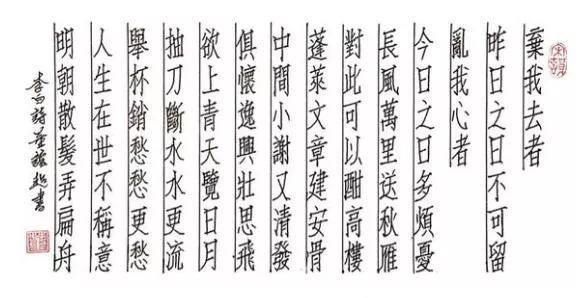 棄我去者
昨日之日不可留
亂我心者
今日之日多煩憂
長風萬里送秋雁
對此可以酣高樓
蓬萊文章建安骨
中間小謝又清發
俱懷逸興壯思飛
欲上青天覽日月
抽刀斷水水更流
舉杯銷愁愁更愁
人生在世不稱意
明朝散髮弄扁舟
李白詩書